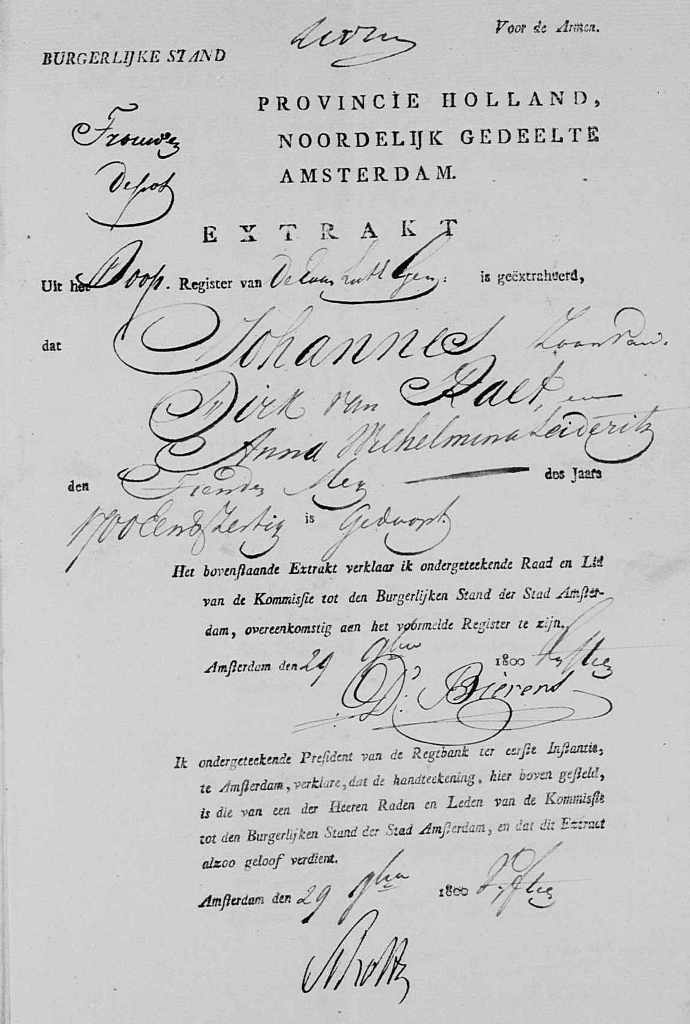 Voor de Armen.
BURGERLIJKE STAND
PROVINCIE HOLLAND,
NOORDELIJK GEDEELTE
AMSTERDAM.
Trouwen
Depot
EXTRAKT
Uit het Doop. Register van De Luth Gem: is geëxtraheerd,
dat Johannes Zoon van.
Dirk van Raet, en
Anna Wilhelmina Leideritz
den Tienden Mey des Jaars
1700 Een & Zestig is Gedoopt.
Het bovenstaande Extrakt verklaar ik ondergeteekende Raad en Lid
van de Kommissie tot den Burgerlijken Stand der Stad Amster-
dam, overeenkomstig aan het voormelde Register te zijn.
Amsterdam den 29 9ber 1800 Vyftien
D. Bierens
Ik ondergeteekende President van de Regtbank ter eerste Instantie,
te Amsterdam, verklare, dat de handteekening, hier boven gesteld,
is die van een der Heeren Raden en Leden van de Kommissie
tot den Burgerlijken Stand der Stad Amsterdam, en dat dit Extract
alzoo geloof verdient.
Amsterdam den 29 9ber 1800 Vyftien